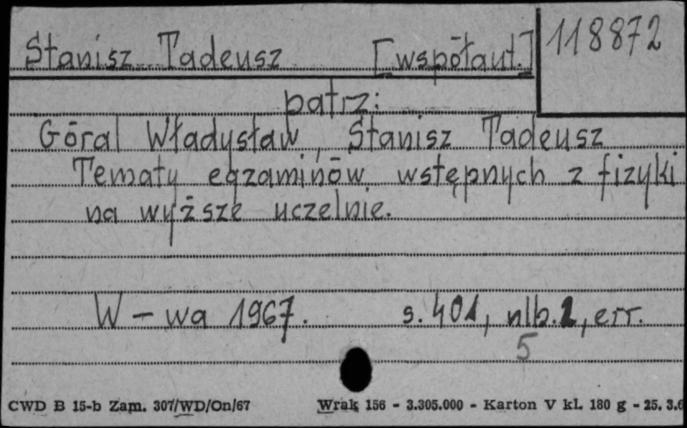 Stanisz Tadeusz [współaut.] 118872
patrz:
Góral Władysław, Stanisz Tadeusz
Tematy egzaminów wstępnych z fizyki
na wyższe uczelnie.
W-wa 1967. s. 401, nlb. 1, err.
5
CWD B 15-b Zam. 307/WD/On/67 Wrak 156 - 3.305.000 - Karton V kl. 180 g - 25. 3.6